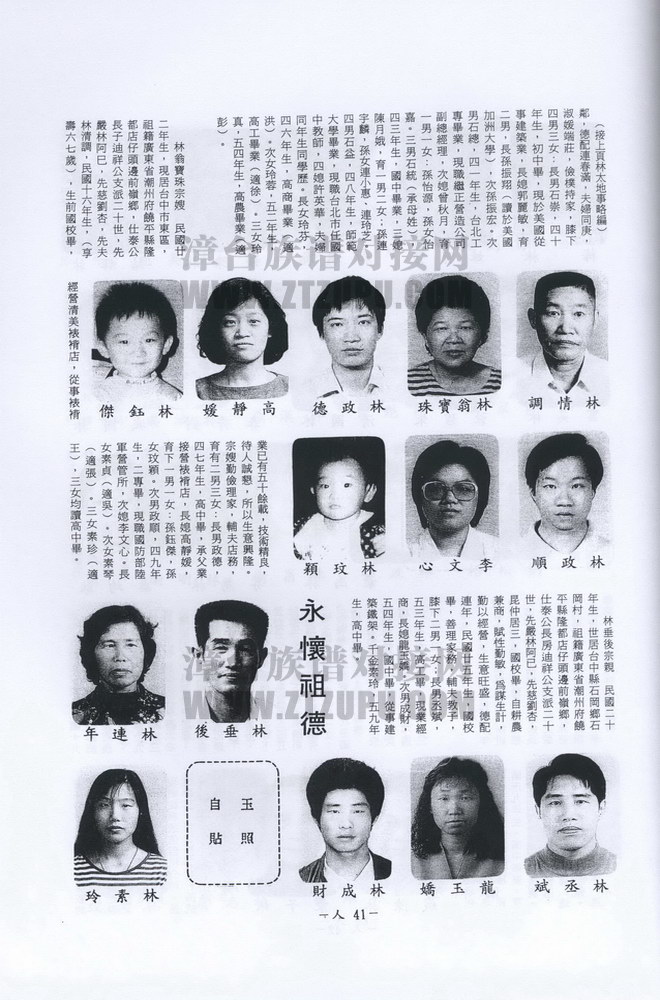 (接上頁林太地事略編)
鄰，德配連春滿，夫婦同庚，
淑媛端莊，儉樸持家，膝下
四男三女：長男石崇，四十
年生，初中畢，現於美國從
事建築業，長媳郭麗敏，育
二男，長孫振翔（讀於美國
加洲大學），次孫振宏。次
男石總，四一年生，台北工
專畢業，現職繼正營造公司
副總經理，次媳曾秋月，育
一男一女：孫怡源，孫女怡
嘉。三男石統（承母姓），
四三年生，國中畢業，三媳
陳月娥，育一男二女：孫連
宇麟，孫女連小惠，連玲芝。
四男石益，四八年生，師範
大學畢業，現職台北市任國
中教師，四媳許英華，夫婦
同年生同學歷。長女玲芬，
四六年生，高商畢業（適
洪）。次女玲蓉，五二年生，
高工畢業（適徐）。三女玲
真，五四年生，高農畢業（適
彭）。
林翁寶珠宗嫂，民國廿
二年生，現居台中市東區，
祖籍廣東省潮州府饒平縣隆
都店仔頭邊前嶺鄉，仕泰公
長子迪祥公支派二十世，先
嚴林阿巳，先慈劉杏，先夫
林清調，民國十六年生，（享
壽六七歲），生前國校畢，
經營清美裱褙店，從事裱褙
林情調
林翁寶珠
林政德
高靜媛
林鈺傑
業已有五十餘載，技術精良，
待人誠懇，所以生意興隆。
宗嫂勤儉理家，輔夫店務，
育有二男三女：長男政德，
四七年生，高中畢，承父業
接營裱褙店，長媳高靜媛，
育下一男一女：孫鈺傑，孫
女玟穎。次男政順，四九年
生，二專畢，現職國防部陸
軍營管所，次媳李文心。長
女素貞（適吳）。次女素琴
（適張）。三女素珍（適
王），三女均讀高中畢。
林政順
李文心
林玟穎
林垂後宗親，民國二十
年生，世居台中縣石岡鄉石
岡村，祖籍廣東省潮州府饒
平縣隆都店仔頭邊前嶺鄉，
仕泰公長房迪祥公支派二十
世，先嚴林阿巳，先慈劉杏，
昆仲居三，國校畢，自耕農
兼商，賦性勤敏，為謀生計，
勤以經營，生意旺盛，德配
連年，民國廿五年生，國校
畢，善理家務，輔夫教子，
膝下二男一女：長男丞斌，
五三年生，高工畢，現業經
商，長媳龍玉嬌。次男成財，
五四年生，國中畢，從事建
築鐵架。千金素玲，五九年
生，高中畢。
永懷祖德
林垂後
林連年
林丞斌
龍玉嬌
林成財
玉照
自貼
林素玲
－人 41－
漳台族谱对接网
WWW.ZTZUPU.COM
漳台族谱对接网
WWW.ZTZUPU.COM